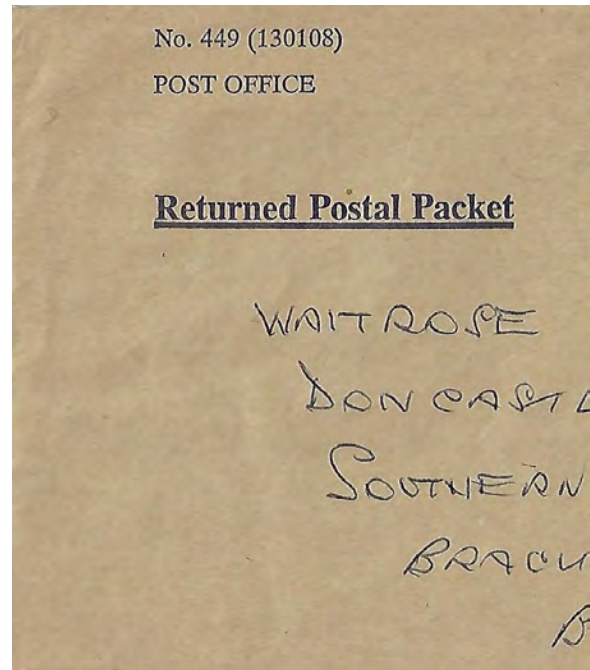 No. 449 (130108)
POST OFFICE
Returned Postal Packet
WAITROSE
DONCASTL
SOUTHERN
BRACK
B